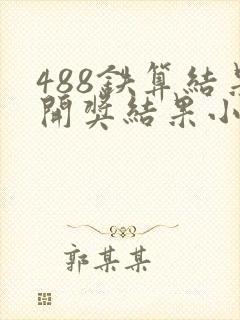 488鉄算結果
開奖結果小
郭某某